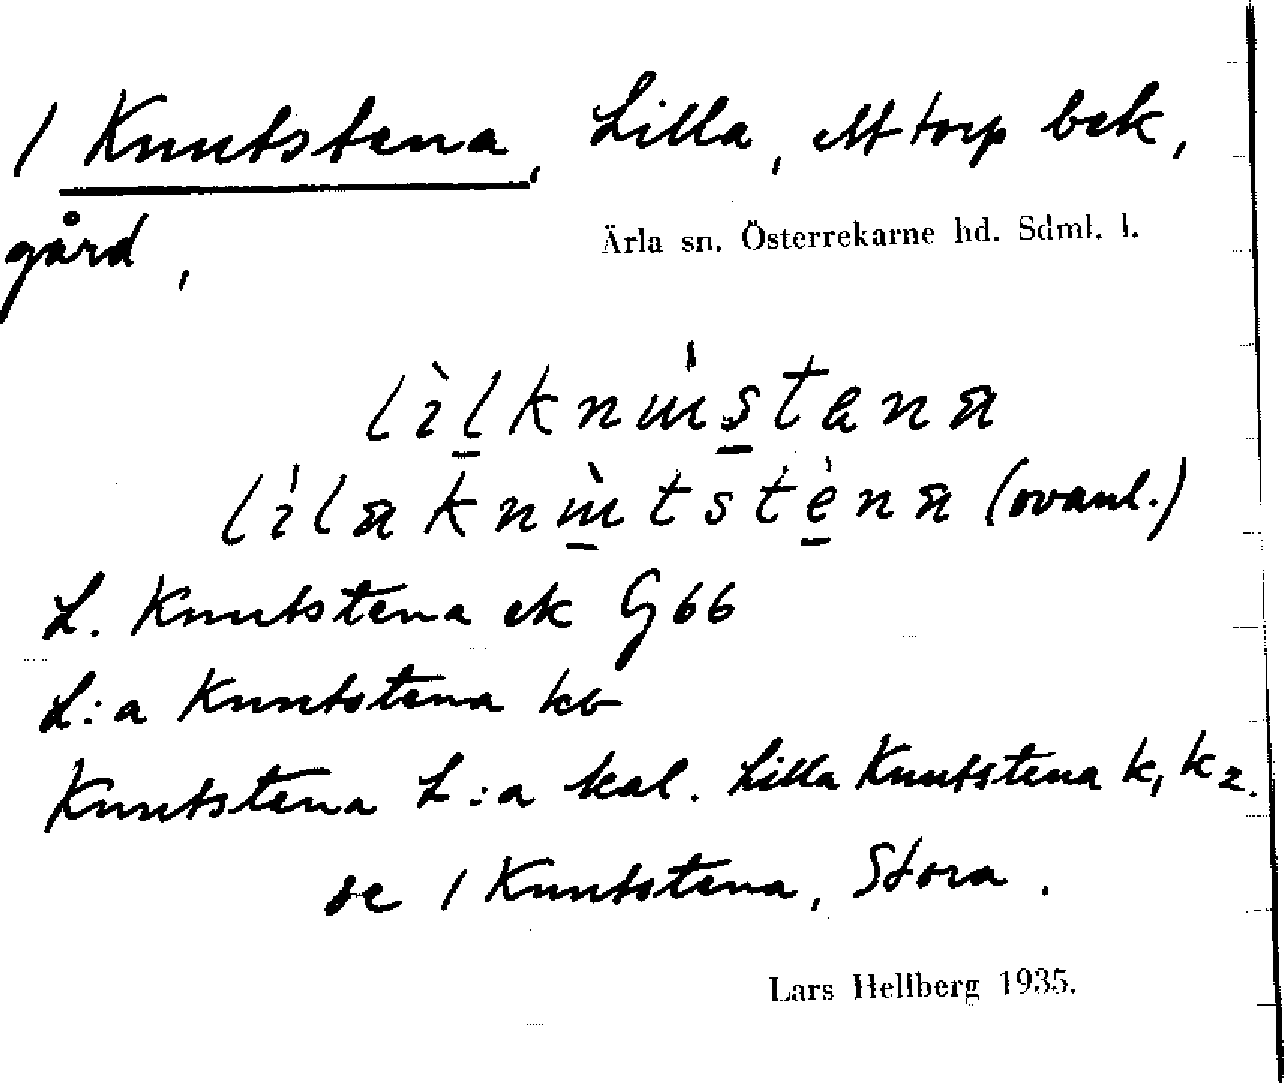 1 Knutstena, Lilla, ett torp bek,
gård,
Ärla sn. Österrekarne hd. Sdml. l.
lìlknɯ́stena
lílaknɯ̀tstèna (ovanl.)
L. Knutstena ek G 66
L:a Knutstena kb
Knutstena L:a kal. Lilla Knutstena k1 k2.
se 1 Knutstena, Stora.
Lars Hellberg 1935.